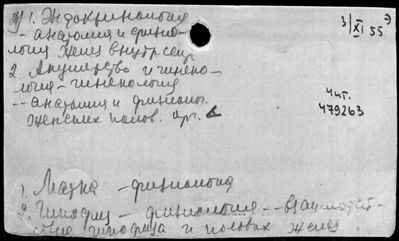 1. Эндокринология
- анатомия и физио-
логия желез внутр. сец.
3/XI 55
2. Акушерство и гинеко-
логия - гинекология
-- анатомия и физиолог.
женских полов. орг.
Чит.
479263
1. Матка - физиология
2. Гипофиз - физиология -- взаимодей-
ствие гипофиза и половых желез